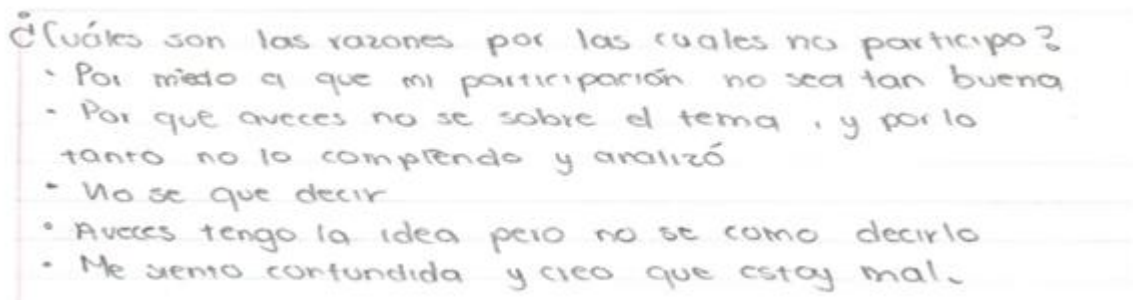 ¿Cuáles son las razones por las cuales no participo?
• Por miedo a que mi participación no sea tan buena
• Por que aveces no se sobre el tema, y por lo
tanto no lo comprendo y analizó
• No se que decir
• Aveces tengo la idea pero no se como decirlo
• Me siento confundida y creo que estoy mal.